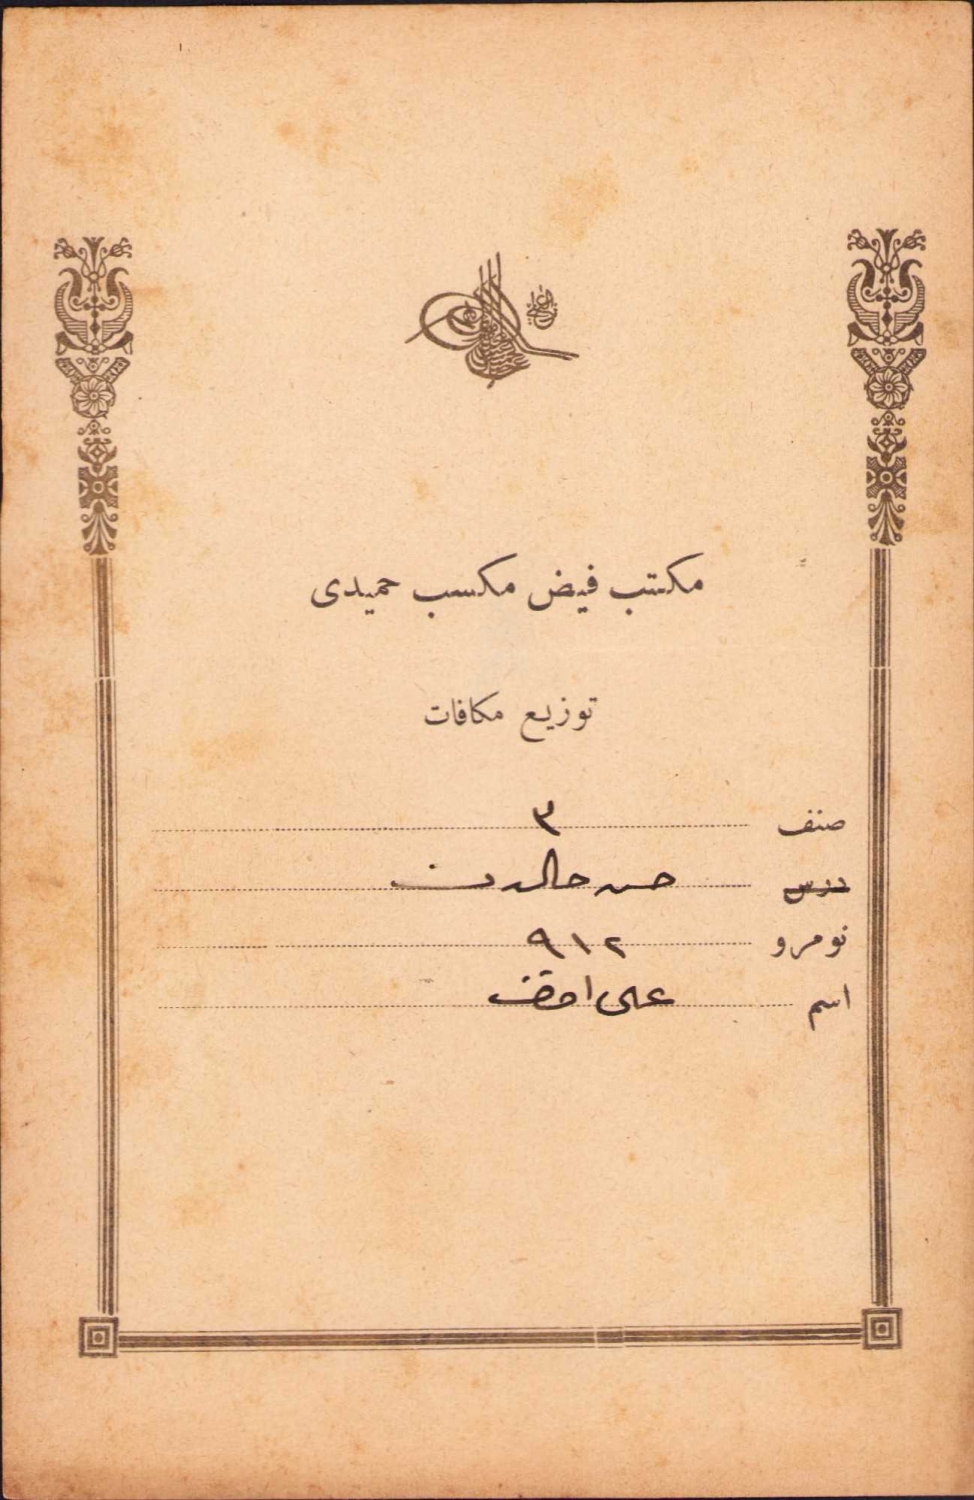 مكتب فيض مكسب حميدى
توزيع مكافات
صنف ٣
درس حسن حالدن
نومرو ٩١٢
اسم على